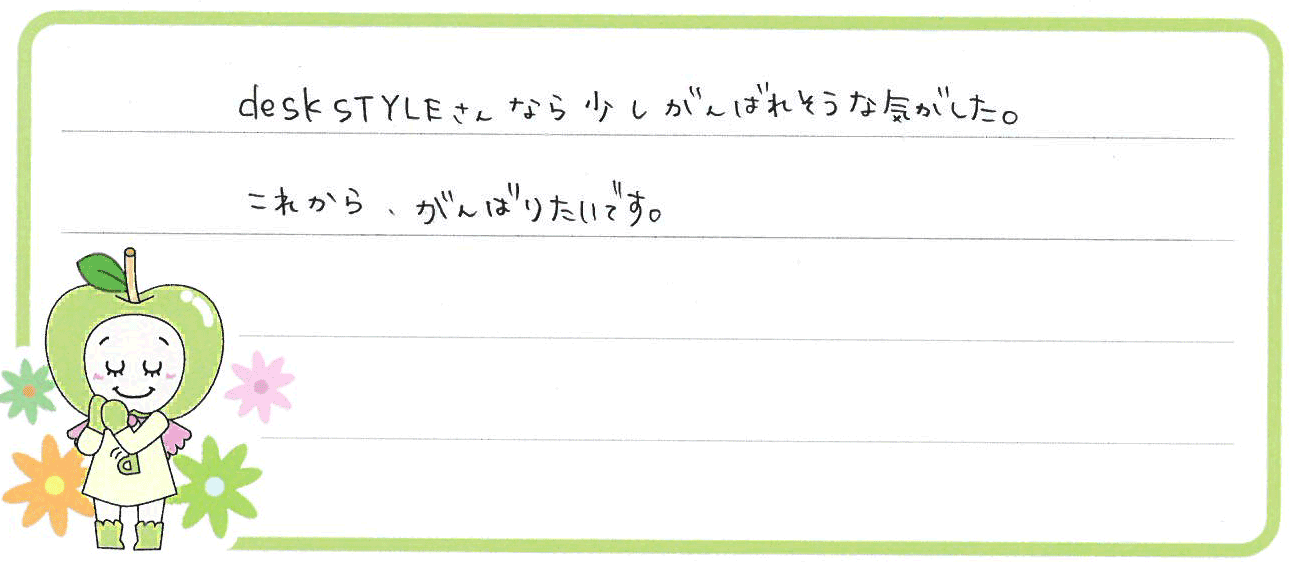 desk STYLEさんなら少しがんばれそうな気がした。
これから、がんばりたいです。